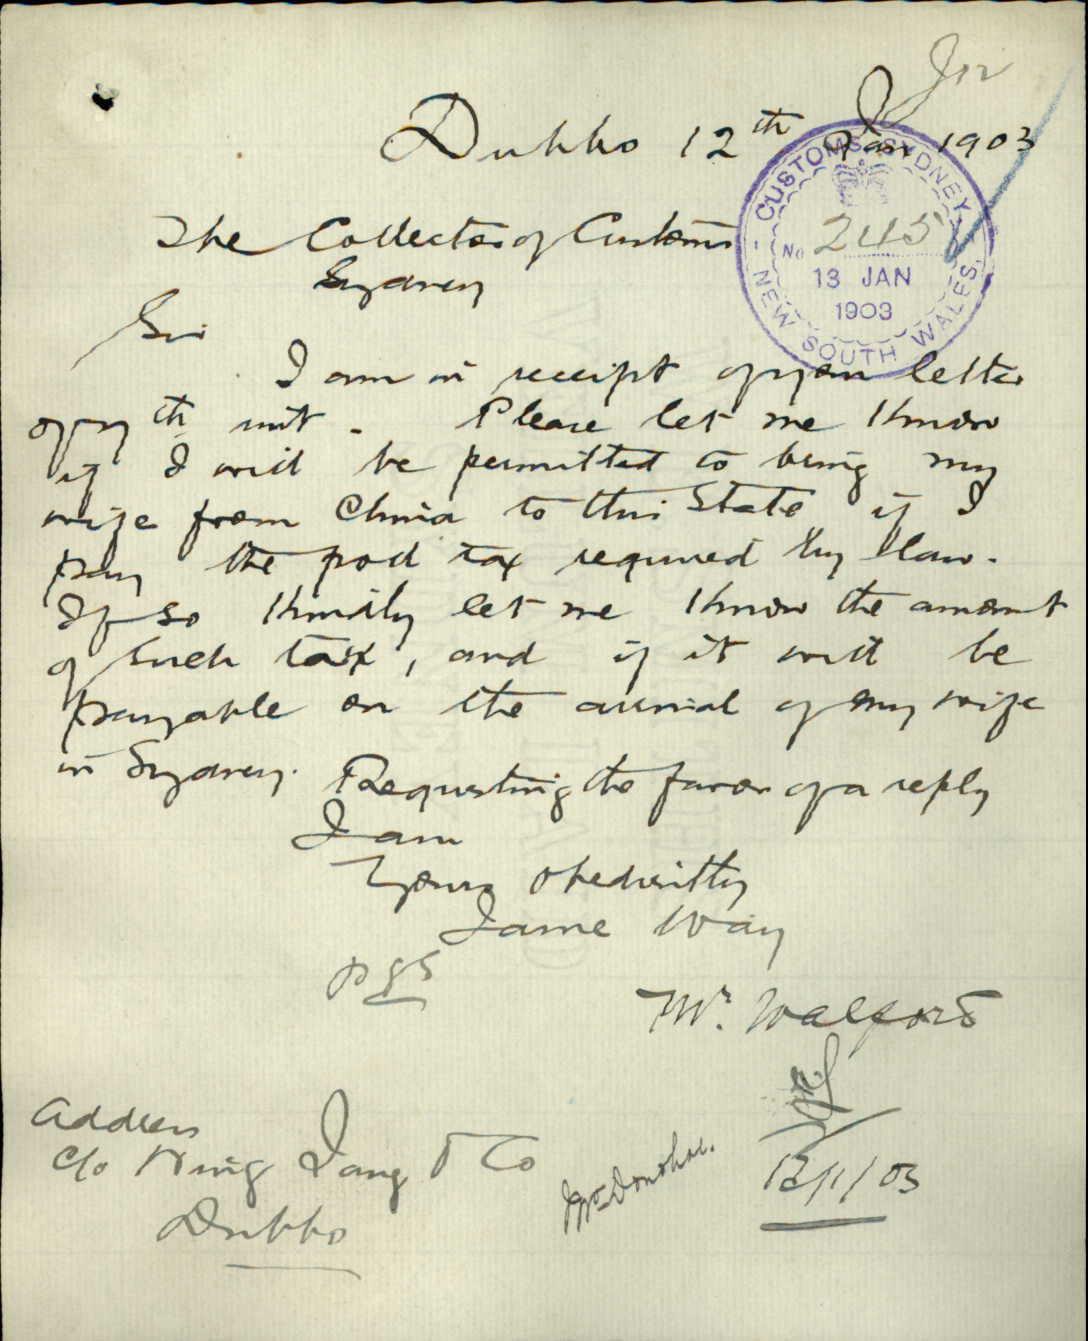 Dubbo 12th Jan 1903
CUSTOMS SYDNEY
No 245
13 JAN
1903
NEW SOUTH WALES
The Collector of Customs
Sydney
Sir
I am in receipt of your letter
of 9th inst. Please let me know
if I will be permitted to bring my
wife from China to this State if I
pay the poll tax required by law.
If so kindly let me know the amount
of such tax, and if it will be
payable on the arrival of my wife
in Sydney. Requesting the favor of a reply
I am
Yours obediently
Jame Way
Mr. Walford
Address
c/o King Jang & Co
Dubbo
Mr Donohoe.
13/1/03